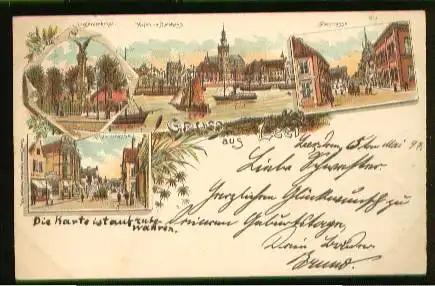 Gruss
aus Leer
Leer den 5ten Mai 98.
Liebe Schwester
Herzlichen Glückwunsch zu
Deinem Geburtstage,
Dein Bruder
Bruno.
Die Karte ist aufzube-
wahren.